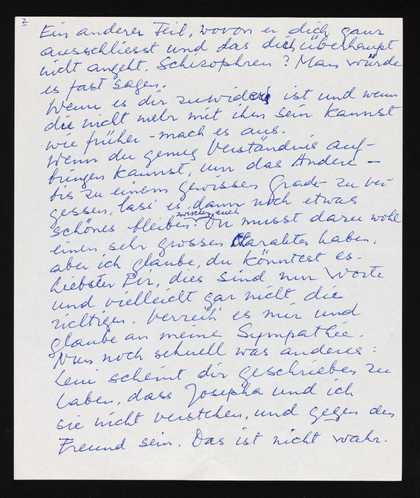 2
Ein anderer Teil, wovon er dich ganz
ausschliesst und das dich überhaupt
nicht angeht. Schizophren? Man würde
es fast sagen.
Wenn es dir zuwider ist und wenn
die nicht mehr mit ihm sein kannst
wie früher - mach es aus.
Wenn du genug Verständnis auf-
bringen kannst, um das Andere -
bis zu einem gewissen Grade zu ver-
gessen, lass es dann noch etwas
schönes bleiben. Du musst dazu wohl
einen sehr grossen Charakter haben,
aber ich glaube, du könntest es.
Liebster Pir, dies sind nur Worte
und vielleicht gar nicht, die
richtigen. Verzeih es mir und
glaube an meine Sympathie.
Nun noch schnell was anderes:
Leni scheint dir geschrieben zu
haben, dass Josepha und ich
sie nicht verstehen, und gegen den
Freund sein. Das ist nicht wahr.